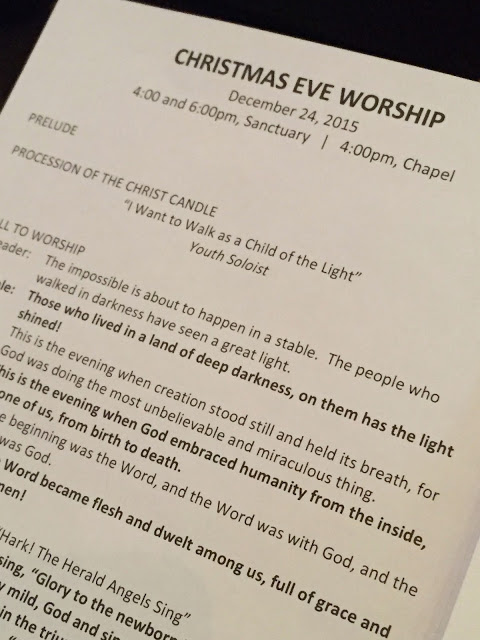 CHRISTMAS EVE WORSHIP
December 24, 2015
4:00 and 6:00pm, Sanctuary | 4:00pm, Chapel
PRELUDE
PROCESSION OF THE CHRIST CANDLE
"I Want to Walk as a Child of the Light"
Youth Soloist
LL TO WORSHIP
eader: The impossible is about to happen in a stable. The people who
walked in darkness have seen a great light.
ple: Those who lived in a land of deep darkness, on them has the light
shined!
This is the evening when creation stood still and held its breath, for
God was doing the most unbelievable and miraculous thing.
his is the evening when God embraced humanity from the inside,
one of us, from birth to death.
e beginning was the Word, and the Word was with God, and the
was God.
Word became flesh and dwelt among us, full of grace and
men!
"Hark! The Herald Angels Sing"
sing, "Glory to the newborn
y mild, God and sin
in the triu